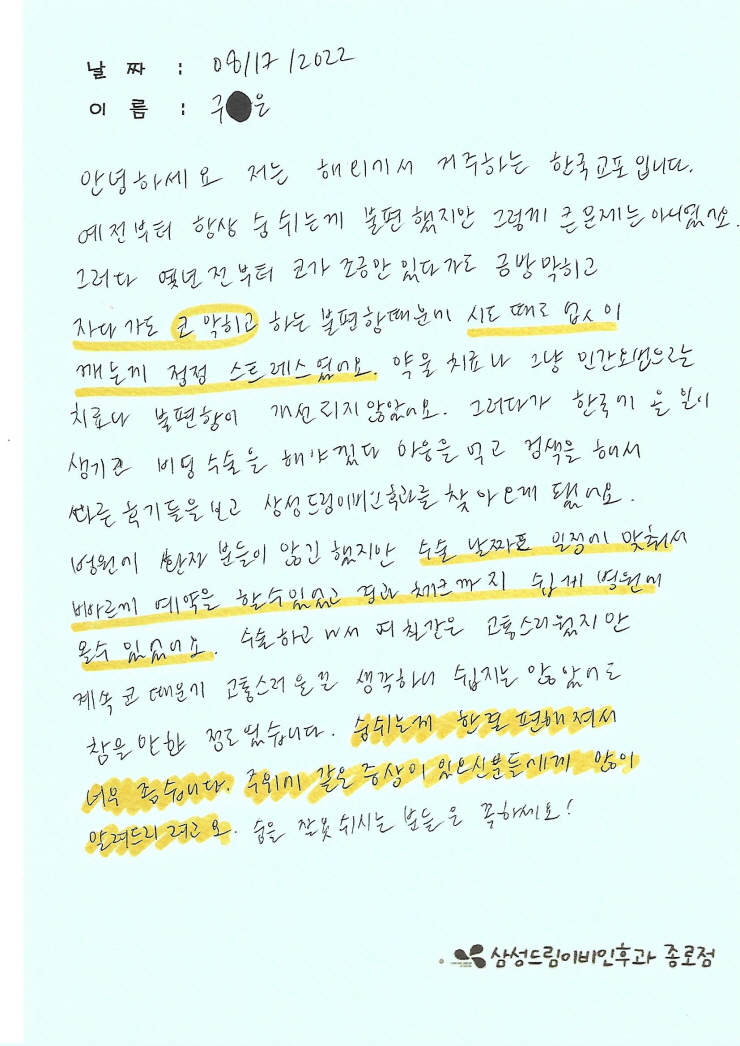 날 짜 : 08/17/2022
이 름 : 구 은
안녕하세요 저는 해외에서 거주하는 한국교포입니다.
예전부터 항상 숨 쉬는게 불편 했지만 그렇게 큰문제는아니였어요.
그러다 몇년전부터 코가 조금만 있다가도 금방막히고
자다가도 코 막히고 하는 불편함때문에 시도 때로 없이
깨는게 점점 스트레스였어요. 약물 치료나 그냥 민간요법으로는
치료나 불편함이 개선되지않았어요. 그러다가 한국에 올 일이
생기고 비밸 수술을 해야겠다 마음을 먹고 검색을 해서
많은 후기들을보고 삼성드림이비인후과를 찾아오게 됐어요.
병원에 환자 분들이 많긴 했지만 수술 날짜도 일정에 맞춰서
빠르게 예약을 할수있었고 경과 체크까지 쉽게 병원에
올수 있었어요. 수술하고 나서 며칠같은 고통스러웠지만
계속 코 때문에 고통스러울걸 생각하니 쉽지는 않았어도
참을 만한 정도였습니다. 숨쉬는게 한결 편해져서
너무 좋습니다. 주위에 같은 증상이 있으신분들에게 많이
알려드리려고요. 숨을 잘못쉬시는 분들은 꼭하세요!
삼성드림이비인후과 종로점